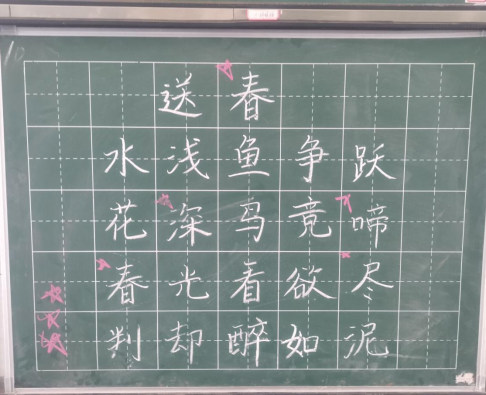 送春
水浅鱼争跃
花深马竟啼
春光看欲尽
判却醉如泥